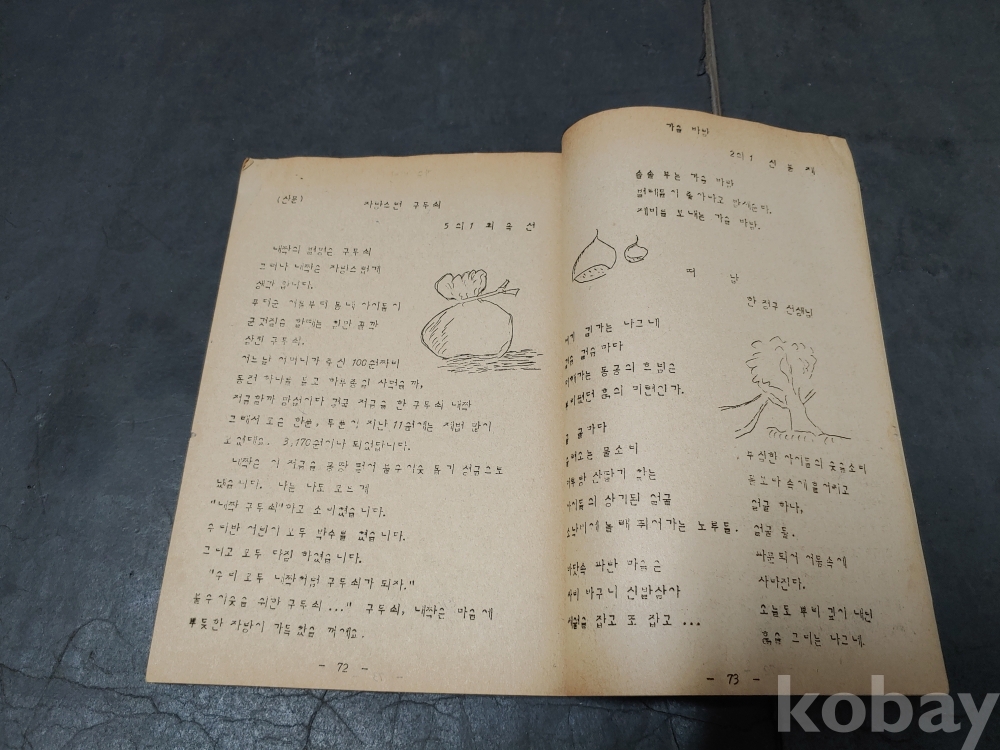 (산문) 자랑스런 구두쇠
5의1 최옥선
내짝의 별명은 구두쇠
그러나 내짝은 자랑스럽게
생각 합니다.
부터는 동네 아이들이
군것질을 할때는 침만 꼴깍
삼킨 구두쇠.
어느날 어머니가 주신 100원짜리
동전 하나를 들고 하루종일 사먹을까,
저금할까 망설이다 결국 저금을 한 구두쇠 내짝
그래서 모은 한푼, 두푼이 지난 11월에는 제법 많이
모였대요. 3,170원이나 되었답니다.
내짝은 이 저금을 몽땅 털어 불우이웃 돕기 성금으로
냈습니다. 나는 나도 모르게
"내짝 구두쇠"하고 소리쳤습니다.
우리반 어린이 모두 박수를 쳤습니다.
그리고 모두 다짐 하였습니다.
"우리 모두 내짝처럼 구두쇠가 되자."
불우이웃을 위한 구두쇠..." 구두쇠, 내짝은 마음에
뿌듯한 자랑이 가득찼을 거예요.
- 72 -
가을 바람
2의1 신
솔솔 부는 가을 바람
벌레들이 좋아나고 만세분다.
제비를 보내는 가을 바람.
떠남
한정구 선생님
길가는 나그네
걸음 걸음 마다
동공의 흐림은
흙의 미련인가.
마다
물소리
산딸기 하는
아이들의 상기된 얼굴
쥐어가는 노부들.
파란 마음은
바구니 신발상사
잡고 또 잡고 ...
무심한 아이들의 웃음소리
속에
얼굴 하나,
얼굴 둘.
되어 어둠속에
사라진다.
오늘도 뿌리 깊이 내린
흙을 그리는 나그네.
- 73 -
kobay